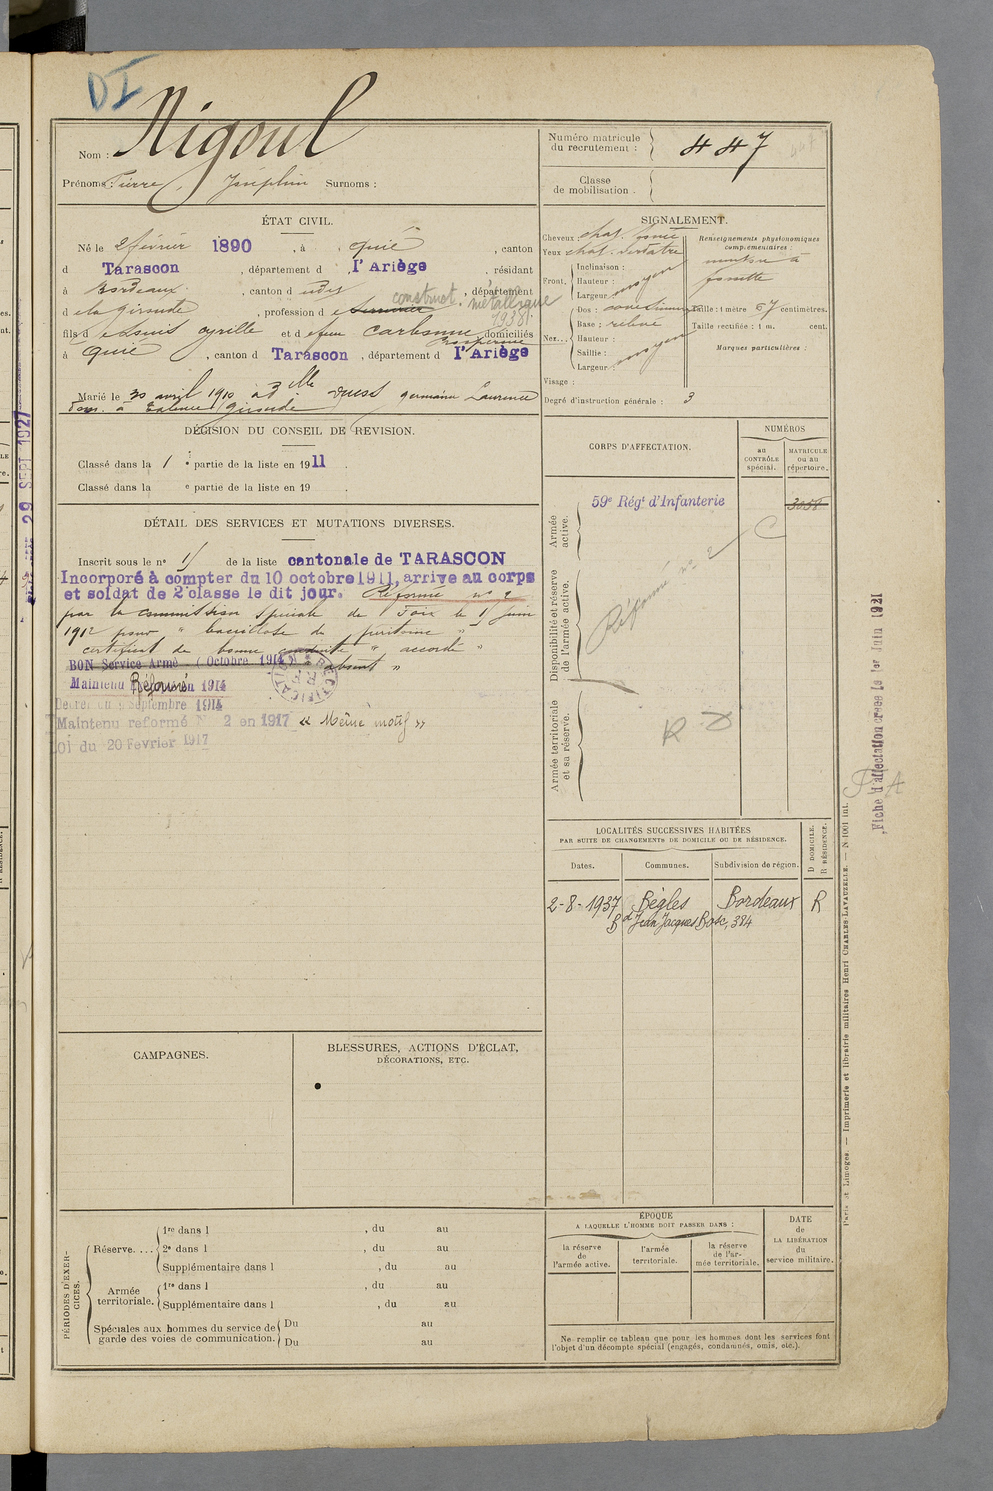 DI
Nom : Nigoul
Prénoms : Pierre, Joséphin Surnoms :
Numéro matricule du recrutement : 447
Classe de mobilisation.
ÉTAT CIVIL.
Né le 2 février 1890, à Quié, canton
d Tarascon, département d l'Ariège, résidant
à Bordeaux, canton d udes, département
construct. métallique
1938
d e la gironde, profession d e
fils d e Louis cyrille et d e feue Carbonne domiciliés
Prosperine
à Quié, canton d Tarascon, département d l'Ariège
Marié le 30 avril 1910 à Mlle germaine Laurence
Dom. à Talence (Gironde
SIGNALEMENT.
Cheveux chat. foncé
Yeux chat.
Front. Inclinaison :
Hauteur : moyen
Largeur
Nez... Dos :
Base : relevé
Hauteur :
Saillie : moyen
Largeur :
Visage :
Renseignements physionomiques complémentaires :
menton à
fossette
Taille : 1 mètre 67 centimètres.
Taille rectifiée : 1 m. cent.
Marques particulières :
Degré d'instruction générale : 3
DÉCISION DU CONSEIL DE REVISION.
Classé dans la 1 e partie de la liste en 1911
Classé dans la e partie de la liste en 19
DÉTAIL DES SERVICES ET MUTATIONS DIVERSES.
Inscrit sous le n° 15 de la liste cantonale de TARASCON
Incorporé à compter du 10 octobre 1911, arrive au corps
et soldat de 2e classe le dit jour. Réformé n° 2
par la commission spéciale de Foix le 15 juin
1912 pour " bacillose du péritoine "
certificat de bonne conduite " accordé "
BON Service Armé Octobre 1914 absent "
Maintenu Réformé en 1914
Décret du 9 Septembre 1914
Maintenu reformé N° 2 en 1917 « Même motif »
Loi du 20 Fevrier 1917
CORPS D'AFFECTATION.
NUMÉROS
au CONTRÔLE spécial.
MATRICULE ou au répertoire.
Armée active.
59e Régt d'Infanterie
3058
Disponibilité et réserve de l'armée active.
Réformé n° 2
C
Armée territoriale et sa réserve.
R D
LOCALITÉS SUCCESSIVES HABITÉES
PAR SUITE DE CHANGEMENTS DE DOMICILE OU DE RÉSIDENCE.
Dates. Communes. Subdivision de région. D DOMICILE. R RÉSIDENCE.
2-8-1937 Bègles Bordeaux R
Bd Jean Jacques Bosc, 384
CAMPAGNES.
BLESSURES, ACTIONS D'ÉCLAT, DÉCORATIONS, ETC.
PÉRIODES D'EXERCICES.
Réserve.... 1re dans l , du au
2e dans l , du au
Supplémentaire dans l , du au
Armée territoriale. 1re dans l , du au
Supplémentaire dans l , du au
Spéciales aux hommes du service de garde des voies de communication. Du au
Du au
ÉPOQUE
A LAQUELLE L'HOMME DOIT PASSER DANS :
la réserve de l'armée active.
l'armée territoriale.
la réserve de l'armée territoriale.
DATE de LA LIBÉRATION du service militaire.
Ne remplir ce tableau que pour les hommes dont les services font l'objet d'un décompte spécial (engagés, condamnés, omis, etc.).
Paris et Limoges. — Imprimerie et librairie militaires Henri CHARLES-LAVAUZELLE. — N 1001 int.
Fiche d'affectation créée le 1er Juin 1921
29 SEPT 1927